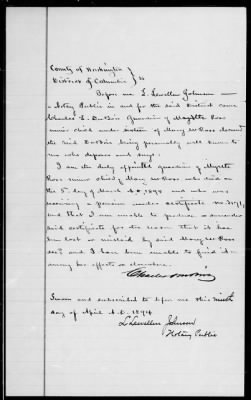 County of Washington
District of Columbia } ss
Before me L. Lewellen Johnson
a Notary Public in and for the said District came
Charles E. DuBois Guardian of
Ross
minor child under sixteen of Mary M. Ross deceased
the said DuBois being personally well known to
me who deposes and says:
I am the duly appointed guardian of
Ross minor child of Mary M. Ross who died on
the 5 day of March A.D. 1894 and who was
receiving a pension under certificate no.
and that I am unable to produce & surrender
said certificate for the reason that it has
been lost or mislaid by said Mary M. Ross
and I have been unable to find it
among her effects or elsewhere.
Charles DuBois
Sworn and subscribed to before me this ninth
day of April A.D. 1894
L. Lewellen Johnson
Notary Public